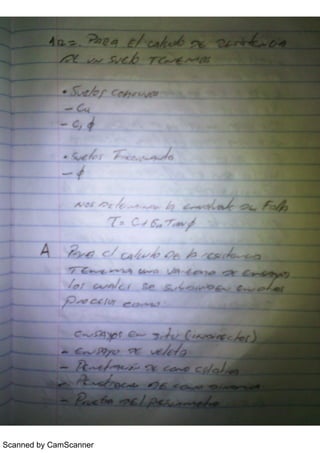 Para el calculo de resistencia
de un suelo tenemos
• Suelos cohesivos
- Cu
- C, φ
• Suelos
- φ
Nos determina la envolvente de Falla
T = C + Tan φ
A Para el calculo de la resistencia
tenemos una de ensayos
los cuales se en otros
procesos como
ensayos en situ (indirectos)
- ensayo de veleta
- Penetración de cono estatico
- de cono dinamico
- Prueba del presiometro
Scanned by CamScanner